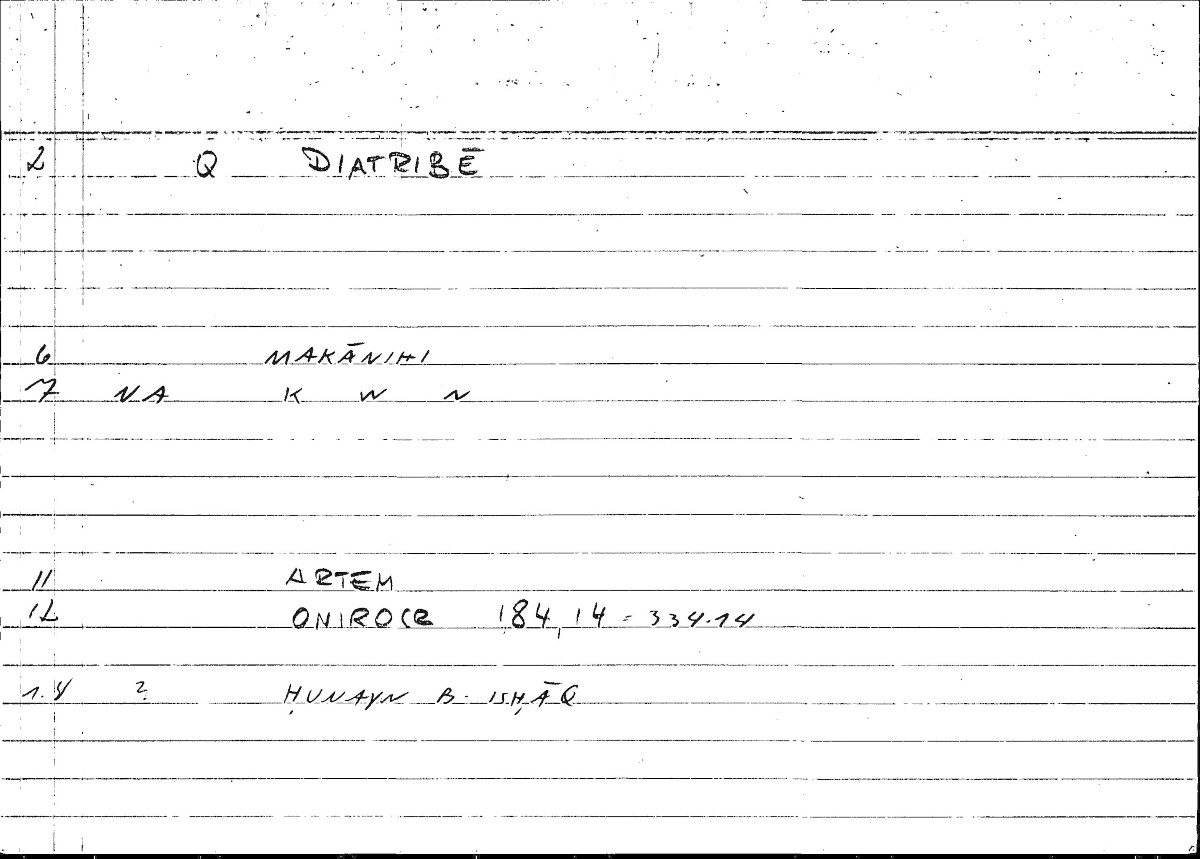 2 Q DIATRIBĒ
6 MAKĀNIHI
7 NA K W N
11 ARTEM
12 ONIROCR 184,14 = 334.14
14 ? ḤUNAYN B. ISḤĀQ